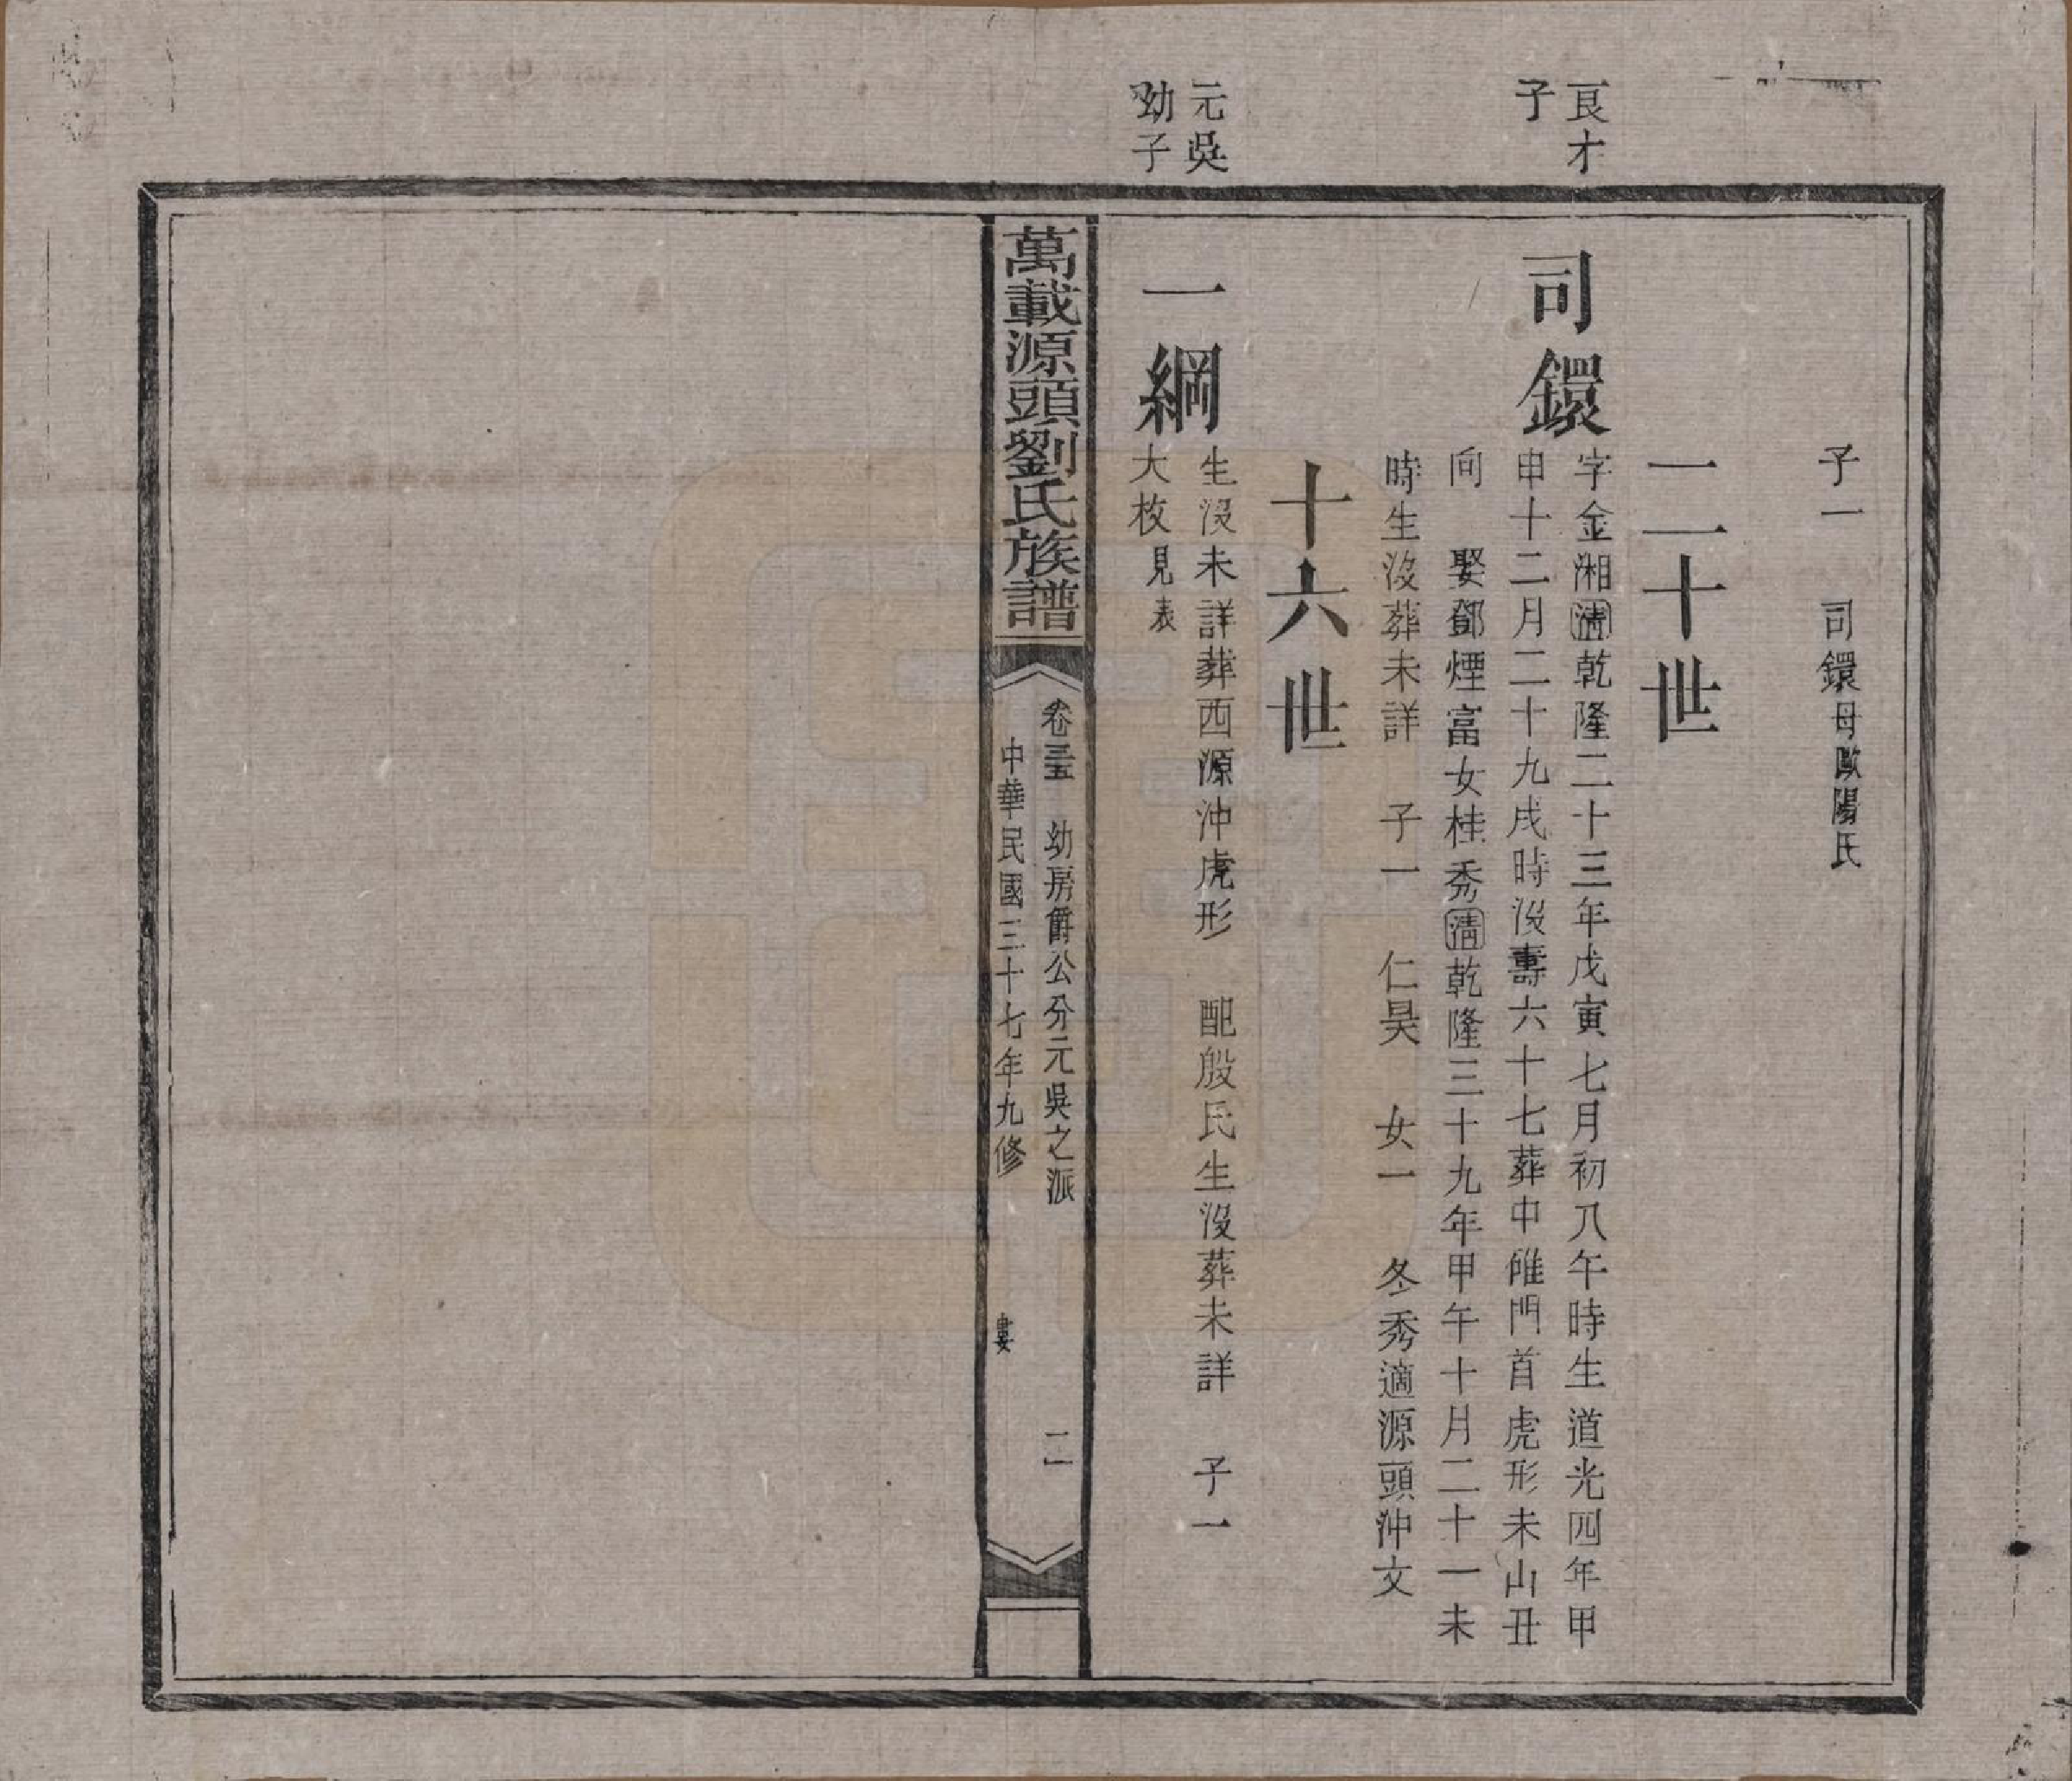 子一　司鐶母歐陽氏
二十世
良才
子
司鐶
字金湘清乾隆二十三年戊寅七月初八午時生道光四年甲
申十二月二十九戌時沒壽六十七葬中雎門首虎形未山丑
向　娶鄧煙富女桂秀清乾隆三十九年甲午十月二十一未
時生沒葬未詳　子一　仁昊　女一　冬秀適源頭沖文
十六世
元吳
幼子
一綱
生沒未詳葬西源沖虎形　配殷氏生沒葬未詳　子一
大枚見表
萬載源頭劉氏族譜
卷三五　幼房爵公分元吳之派　二
中華民國三十七年九修